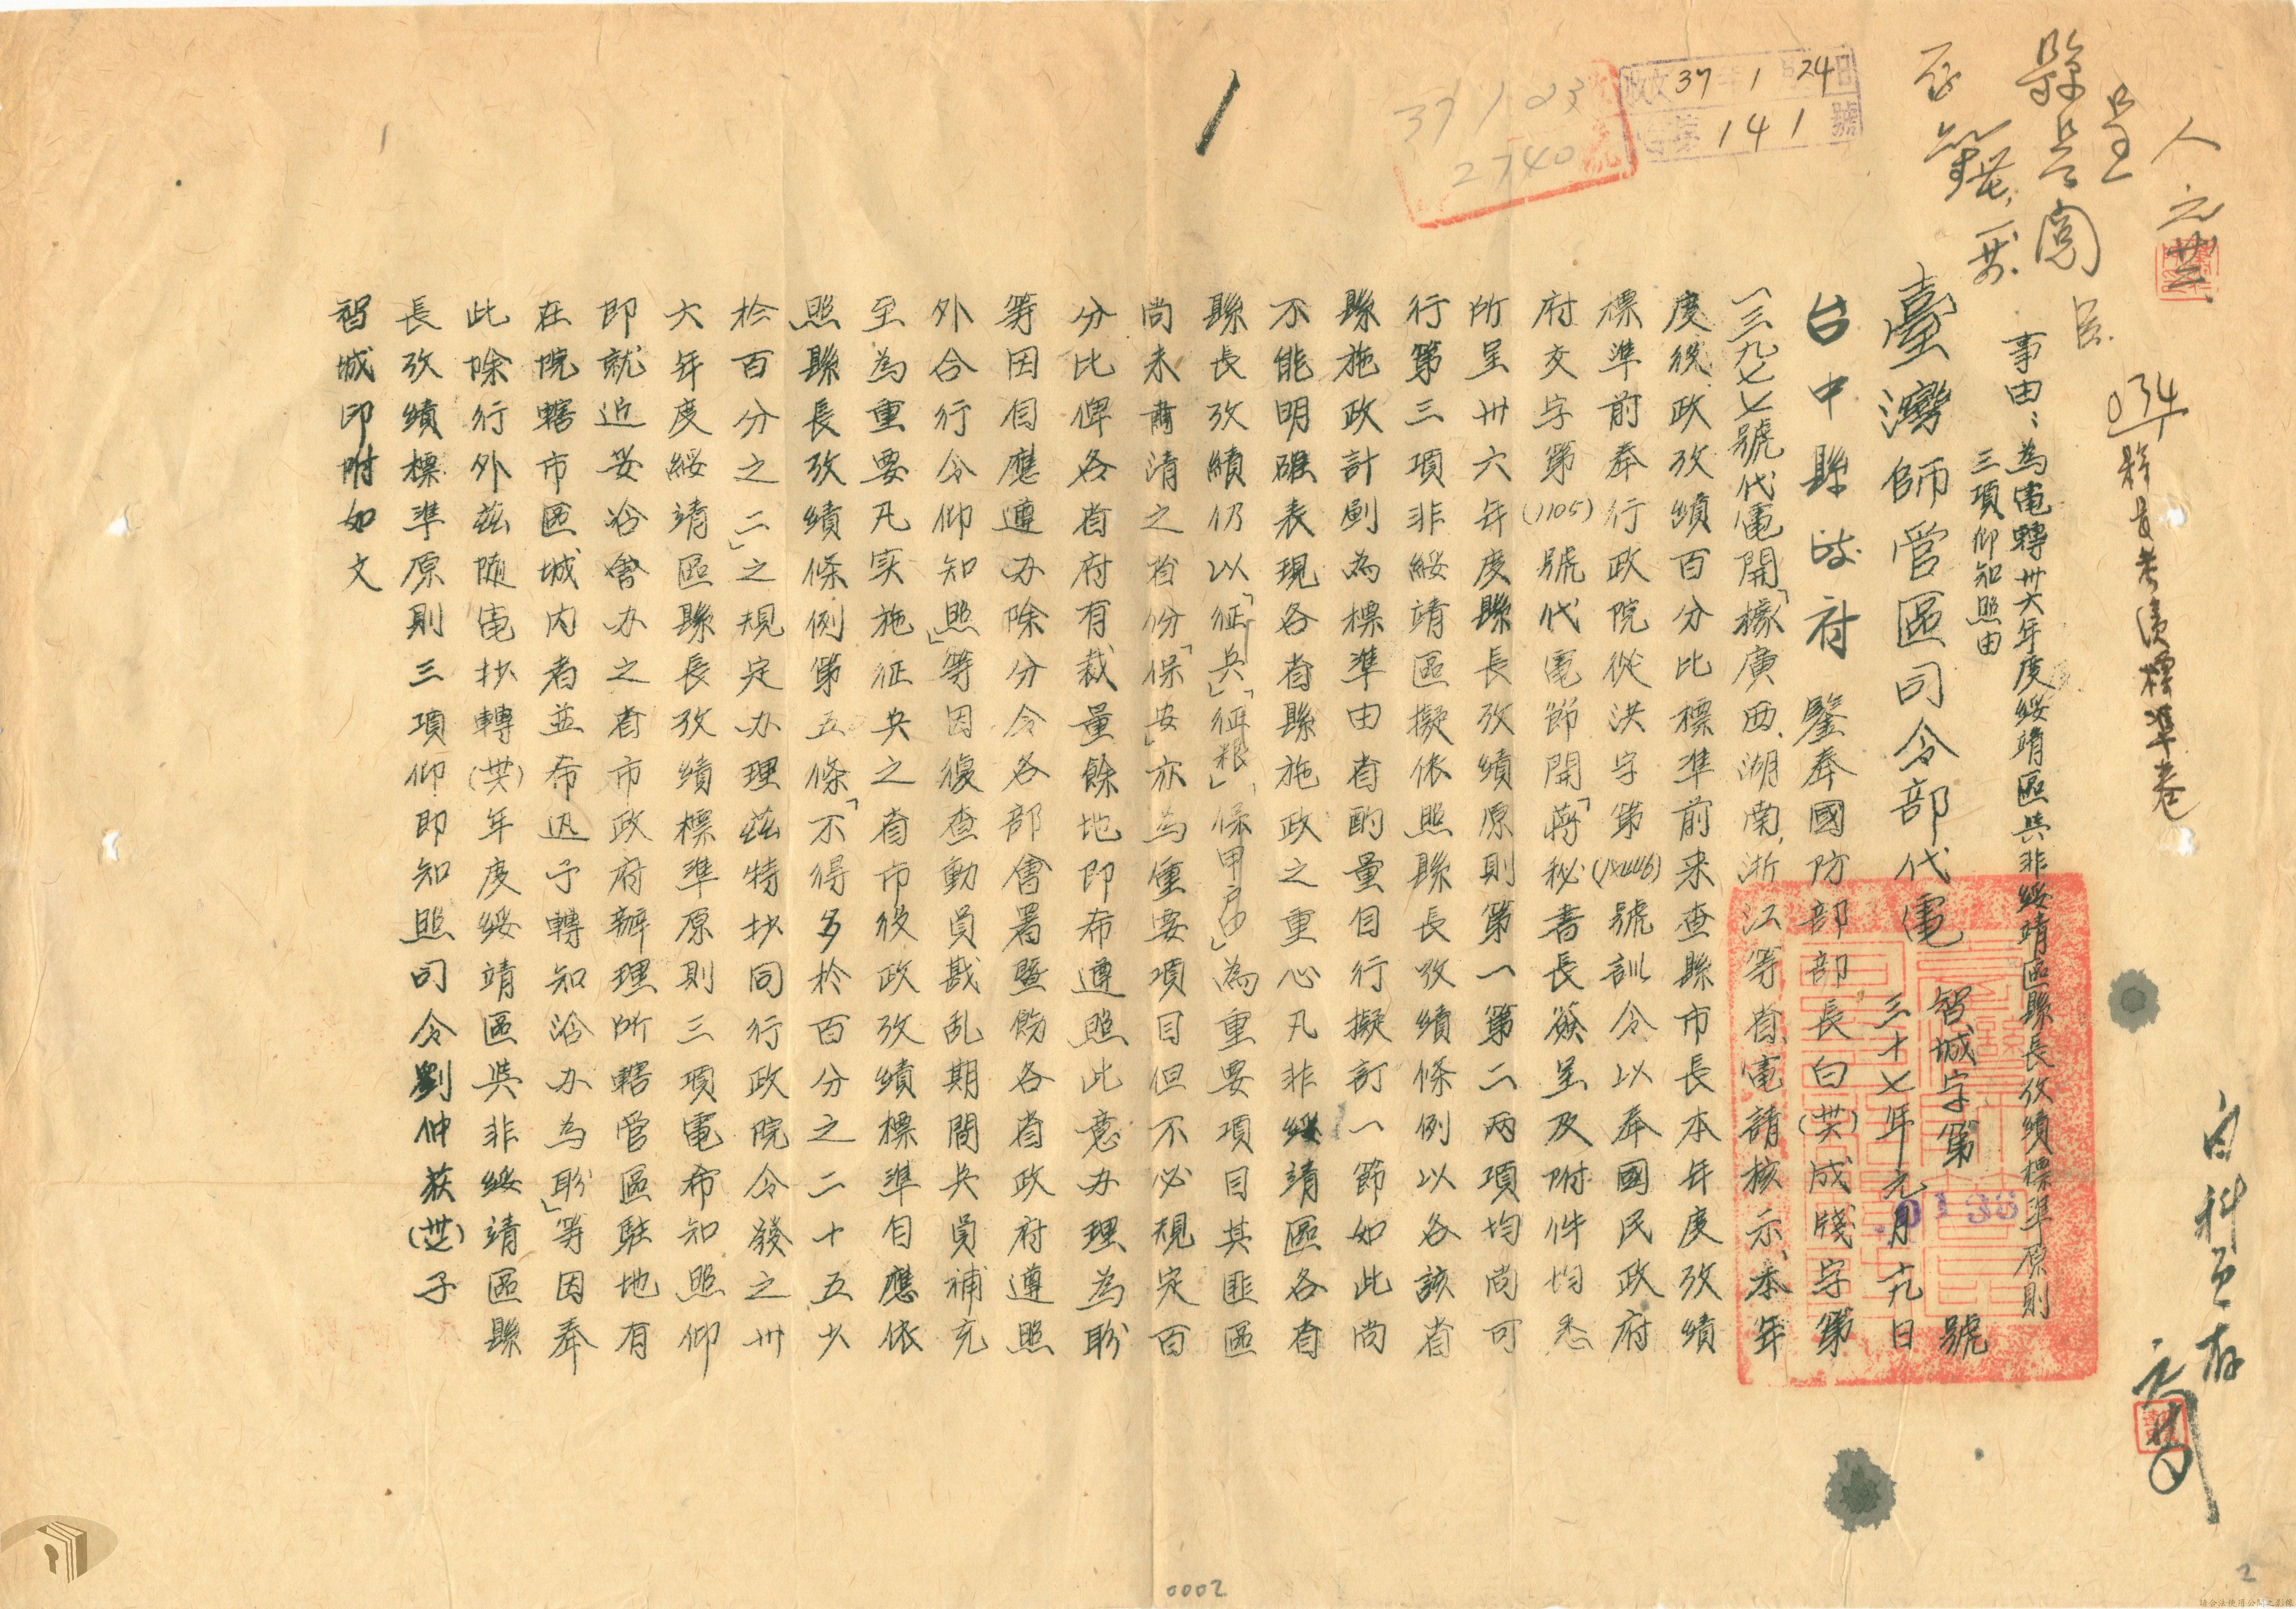 人
呈
縣長閱
收文37年1月24日
字第141號
37 1 23
2740
034
縣長考績標準卷
事由:為電轉卅六年度綏靖區與非綏靖區縣長攷績標準原則
三項仰知照由
臺灣師管區司令部代電
智城字第0138號
三十七年元月十九日
台中縣政府鑒奉國防部部長白(卅六)成牋字第
一三九七七號代電開「據廣西、湖南、浙江等省電請核示本年
度役政攷績百分比標準前来查縣市長本年度攷績
標準前奉行政院從洪字第(12446)號訓令以奉國民政府
府交字第(1105)號代電節開「蔣秘書長簽呈及附件均悉
所呈卅六年度縣長攷績原則第一第二兩項均尚可
行第三項非綏靖區擬依照縣長攷績條例以各該省
縣施政計劃為標準由省酌量自行擬訂一節如此尚
不能明確表現各省縣施政之重心凡非綏靖區各省
縣長攷績仍以「征兵」「征粮」「保甲户口」為重要項目其匪區
尚未肅清之省份「保安」亦為重要項目但不必規定百
分比俾各省府有裁量餘地即希遵照此意办理為盼
等因自應遵办除分令各部會署暨飭各省政府遵照
外合行令仰知照」等因復查動員戡乱期間兵員補充
至為重要凡实施征兵之省市役政攷績標準自應依
照縣長攷績條例第五條「不得多於百分之二十五少
於百分之二」之規定办理茲特抄同行政院令發之卅
六年度綏靖區縣長攷績標準原則三項電希知照仰
即就近妥洽會办之省市政府辦理所轄管區駐地有
在院轄市區域内者並希迅予轉知洽办為盼」等因奉
此除行外茲随電抄轉(卅六)年度綏靖區與非綏靖區縣
長攷績標準原則三項仰即知照司令劉仲荻(卅七)子
智城印附如文
0002
2